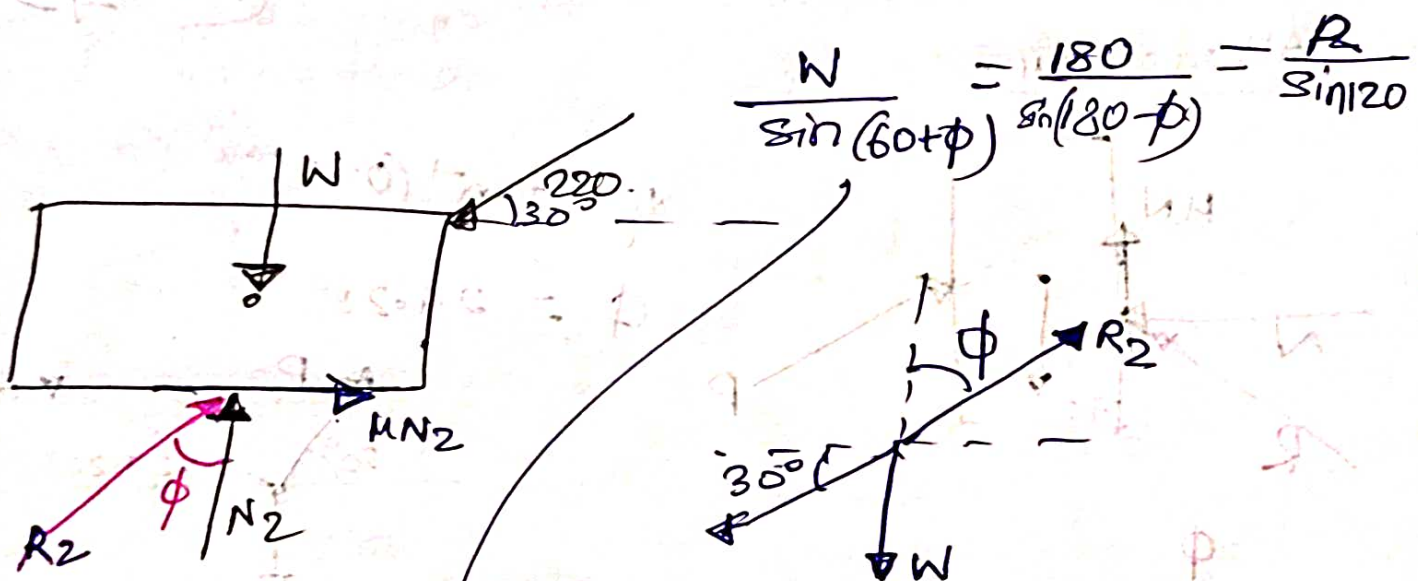 W/sin(60+φ) = 180/sin(180-φ) = R2/sin120
W
220
30°
μN2
φ
N2
R2
φ
R2
30°
W